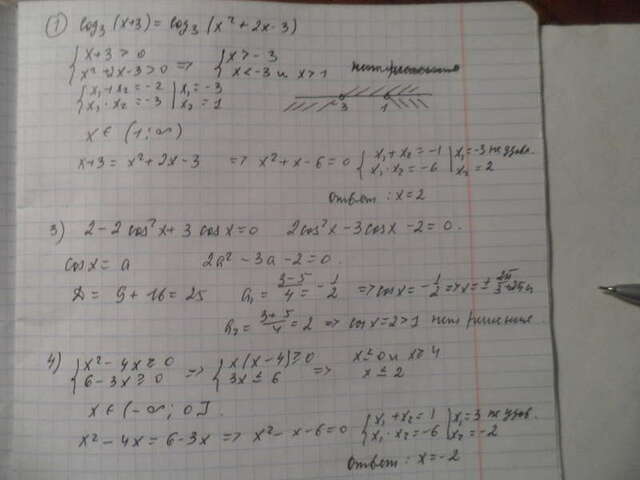 ① log₃ (x+3) = log₃ (x² + 2x - 3)
{ x+3 > 0 { x > -3
{ x² + 2x - 3 > 0 => { x < -3 и x > 1
{ x₁ + x₂ = -2 | x₁ = -3
{ x₁ · x₂ = -3 | x₂ = 1 -3 1
x ∈ (1; ∞)
x+3 = x² + 2x - 3 => x² + x - 6 = 0 { x₁ + x₂ = -1 | x₁ = -3 не удов.
{ x₁ · x₂ = -6 | x₂ = 2
Ответ: x = 2
3) 2 - 2 cos² x + 3 cos x = 0 2cos² x - 3cos x - 2 = 0.
cos x = a 2a² - 3a - 2 = 0.
D = 9 + 16 = 25 a₁ = (3-5)/4 = -1/2 => cos x = -1/2 => x = ± 2π/3 + 2πn
a₂ = (3+5)/4 = 2 => cos x = 2 > 1 нет решения
4) { x² - 4x ≥ 0 => { x(x-4) ≥ 0 => x ≤ 0 и x ≥ 4
{ 6 - 3x ≥ 0 { 3x ≤ 6 x ≤ 2
x ∈ (-∞; 0].
x² - 4x = 6 - 3x => x² - x - 6 = 0 { x₁ + x₂ = 1 | x₁ = 3 не удов.
{ x₁ · x₂ = -6 | x₂ = -2
Ответ: x = -2